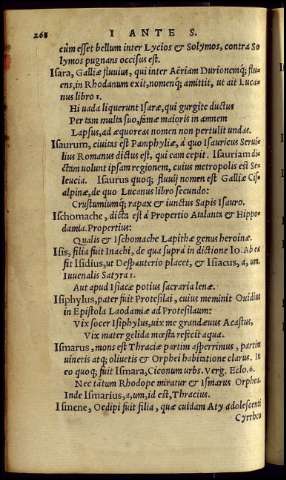 268 I ANTE S.
cùm esset bellum inter Lycios & Solymos, contra So
lymos pugnans occisus est.
Isara, Galliæ fluuius, qui inter Aëriam Durionemq; flu-
ens, in Rhodanum exit, nomenq; amittit, ut ait Luca-
nus libro 1.
Hi uada liquerunt Isaræ, qui gurgite ductus
Per tam multa suo, famæ maioris in amnem
Lapsus, ad æquoreas nomen non pertulit undas.
Isaurum, ciuitas est Pamphyliæ, à quo Isauricus Serui-
lius Romanus dictus est, qui eam cepit. Isauriam di-
ctim uolunt ipsam regionem, cuius metropolis est Se-
leucia. Isaurus quoq; fluuij nomen est Galliæ Cis-
alpinæ, de quo Lucanus libro secundo:
Crustumiumq; rapax & iunctus Sapis Isauro.
Ischomache, dicta est à Propertio Atalanta & Hippo-
damia. Propertius:
Qualis & Ischomache Lapithæ genus heroinæ.
Isis, filia fuit Inachi, de qua supra in dictione Io. Ab ea
fit Isidius, ut Despauterio placet, & Isiacus, a, um.
Iuuenalis Satyra 1.
Aut apud Isiacæ potius sacraria lenæ.
Isiphylus, pater fuit Protesilai, cuius meminit Ouidius
in Epistola Laodamiæ ad Protesilaum:
Vix socer Isiphylus, uix me grandæuus Acastus,
Vix mater gelida mœsta refecit aqua.
Ismarus, mons est Thraciæ partim asperrimus, partim
uineis atq; oliuetis & Orphei habitatione clarus. It
eo quoq; fuit Ismara, Ciconum urbs. Verg. Eclo. 6.
Nec tātum Rhodope miratur & Ismarus Orphea.
Inde Ismarius, a, um, id est, Thracius.
Ismene, Oedipi fuit filia, quæ cuidam Aty adolescenti
Cyrrheo